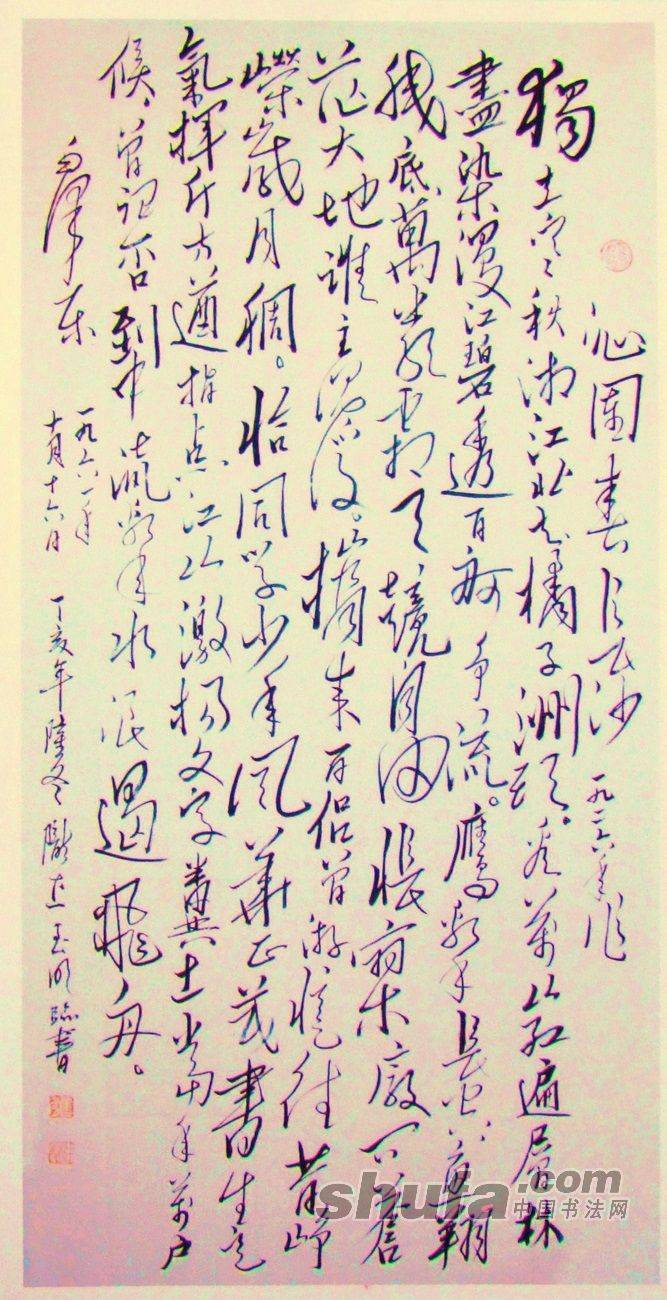 沁園春 長沙 一九二六年作
獨立寒秋湘江北去橘子洲頭。看萬山紅遍層林
盡染漫江碧透百舸爭流。鷹擊長空魚翔
淺底萬類霜天競自由悵寥廓問蒼
茫大地誰主沉浮。攜來百侶曾游憶往昔崢
嶸歲月稠。恰同學少年風華正茂書生意
氣揮斥方遒指点江山激揚文字糞土當年萬户
侯、曾記否到中流擊水浪遏飛舟。
毛澤东
一九六一年
十月十六日
丁亥年隆冬隴上玉明臨書
shufa.com
中国书法网